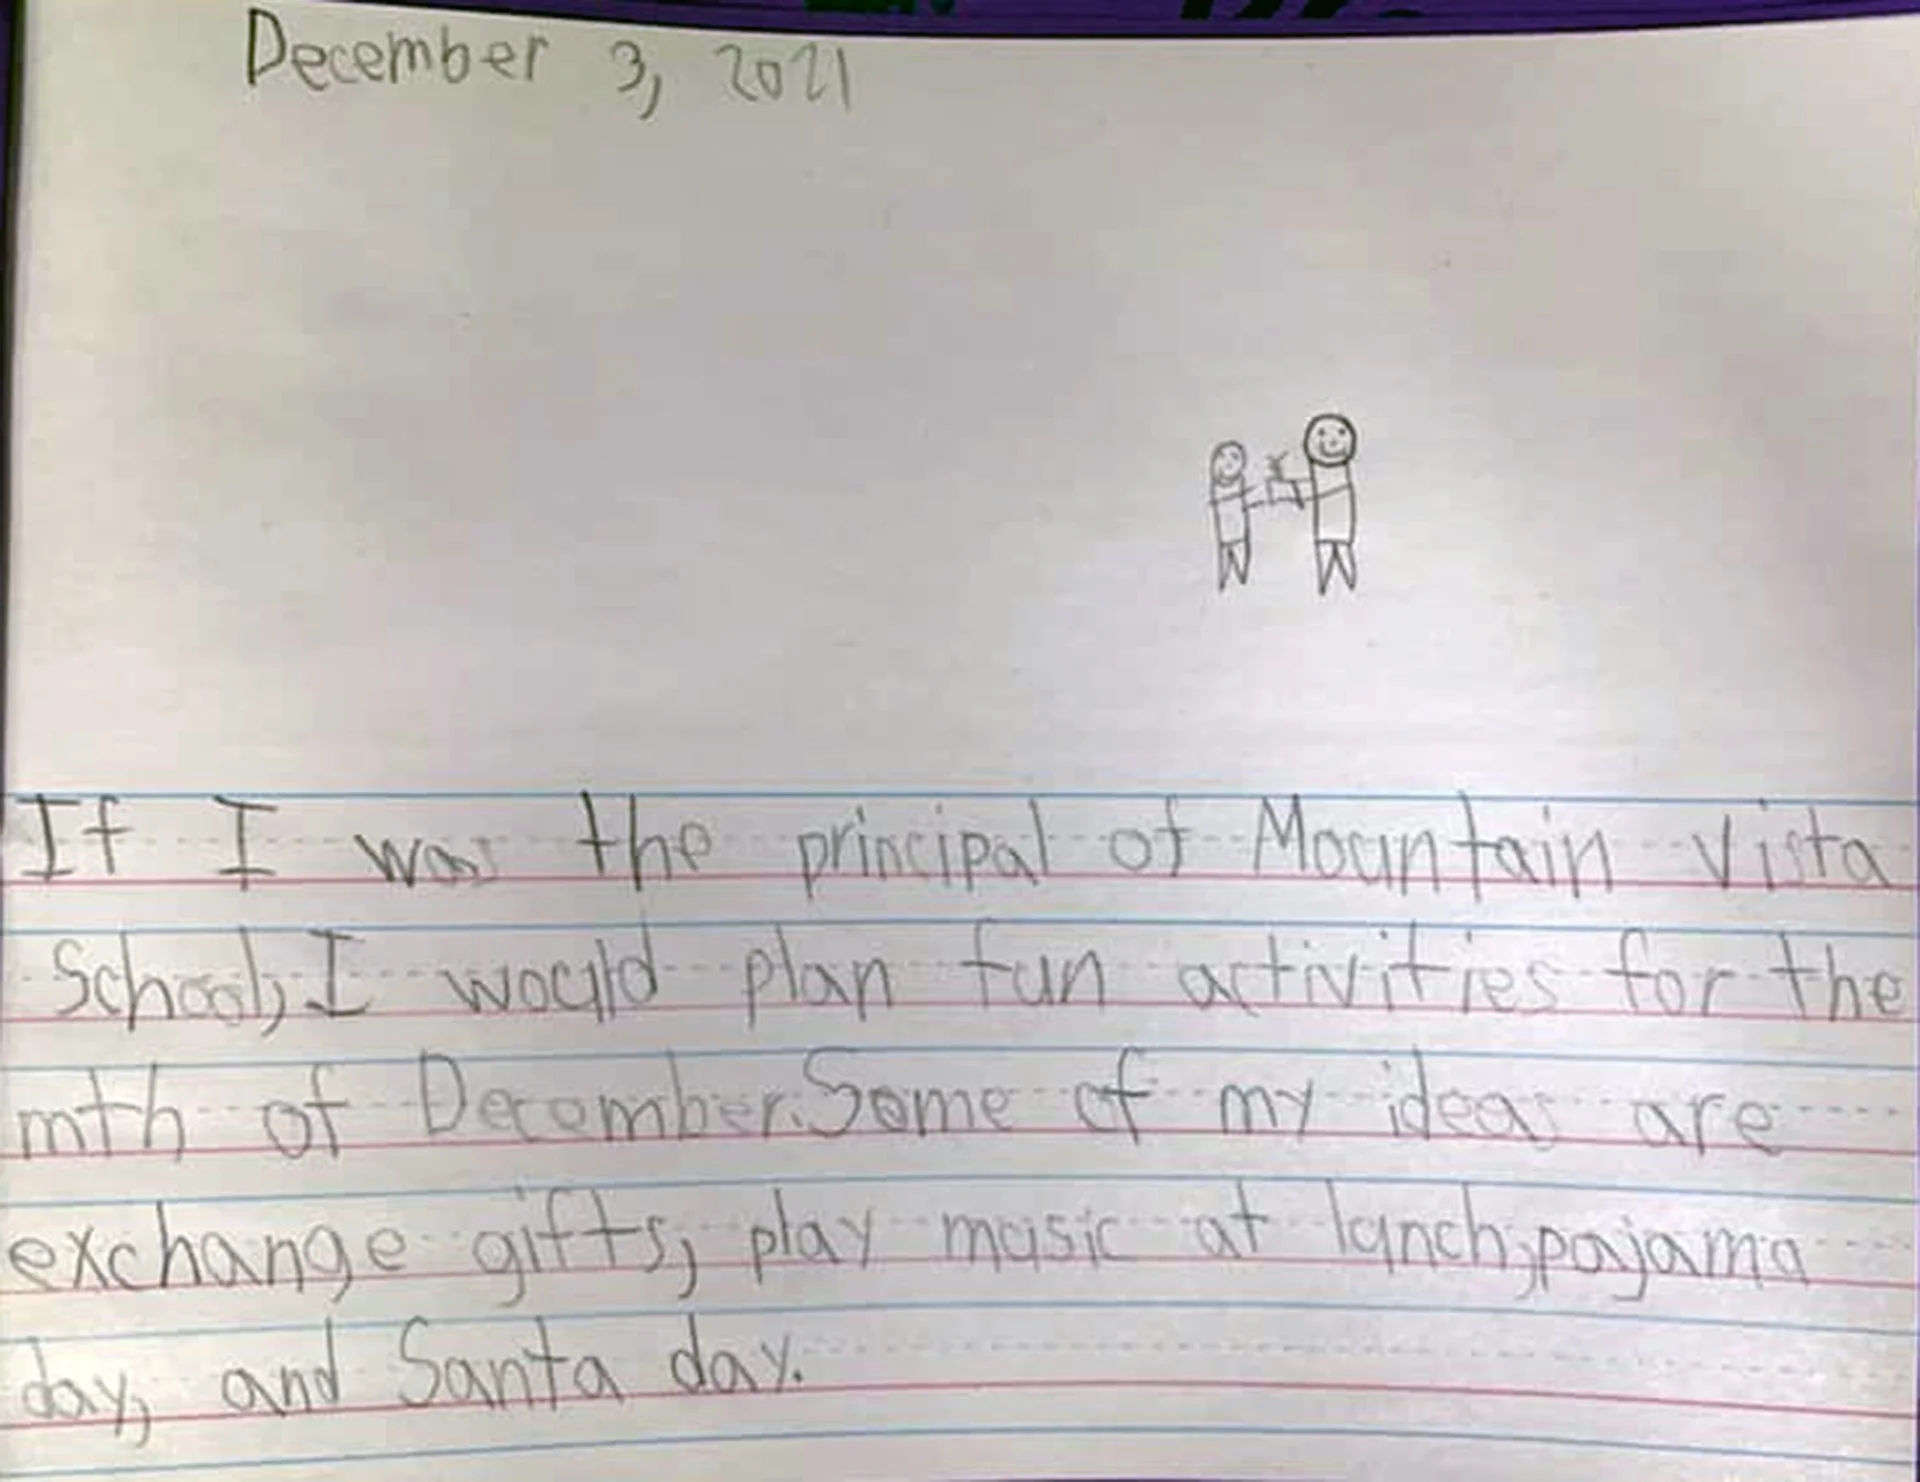 December 3, 2021
If I was the principal of Mountain Vista
School, I would plan fun activities for the
mth of December. Some of my ideas are
exchange gifts, play music at lunch, pajama
day, and Santa day.